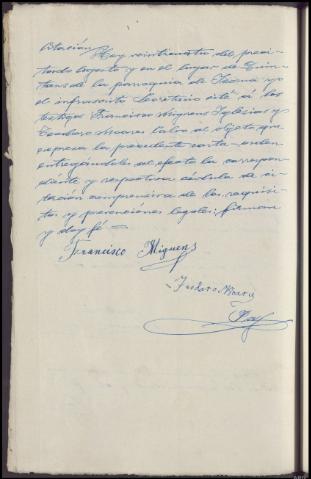 citación. Hoy veinticuatro del preci-
tado Agosto y en el lugar de Quin-
tans de la parroquia de yo
el infrascrito Secretario cité á los
testigos Francisco Miguens Iglesias y
Teodoro al objeto que
expresa la precedente carta-orden
entregándoles al efecto la correspon-
diente y respectiva cédula de ci-
tación comprensiva de los requisi-
tos y prevenciones legales; firman
y doy fé=
Francisco Miguens